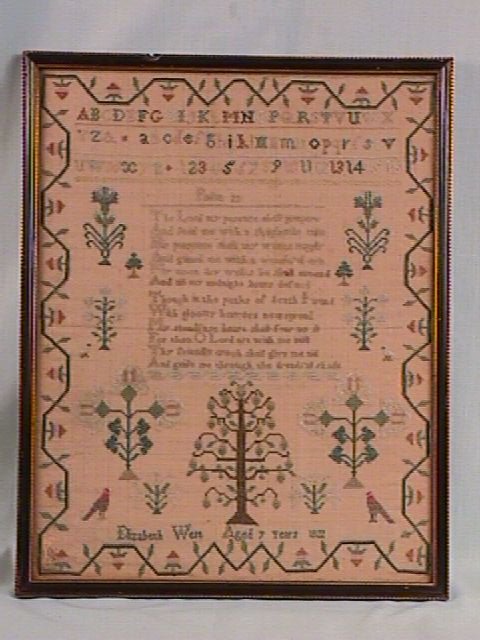 ABCDEFG I K MN P Q R S T V U W X
Y Z a c d e g i k l m m o p q r s v
x 1 23 5 9 11 1314
Psalm 23
The Lord my pasture shall prepare
And feed me with a shepherds care
His presence shall my wants supply
And guard me with a watchful eye
My noon day walks he shall attend
And all my midnight hours defend
Though in the paths of death I tread
With gloomy horrors overspread
My steadfast heart shall fear no ill
For thou O Lord art with me still
Thy friendly crook shall give me aid
And guide me through the dreadful shade
Elizabeth West Aged 7 Years